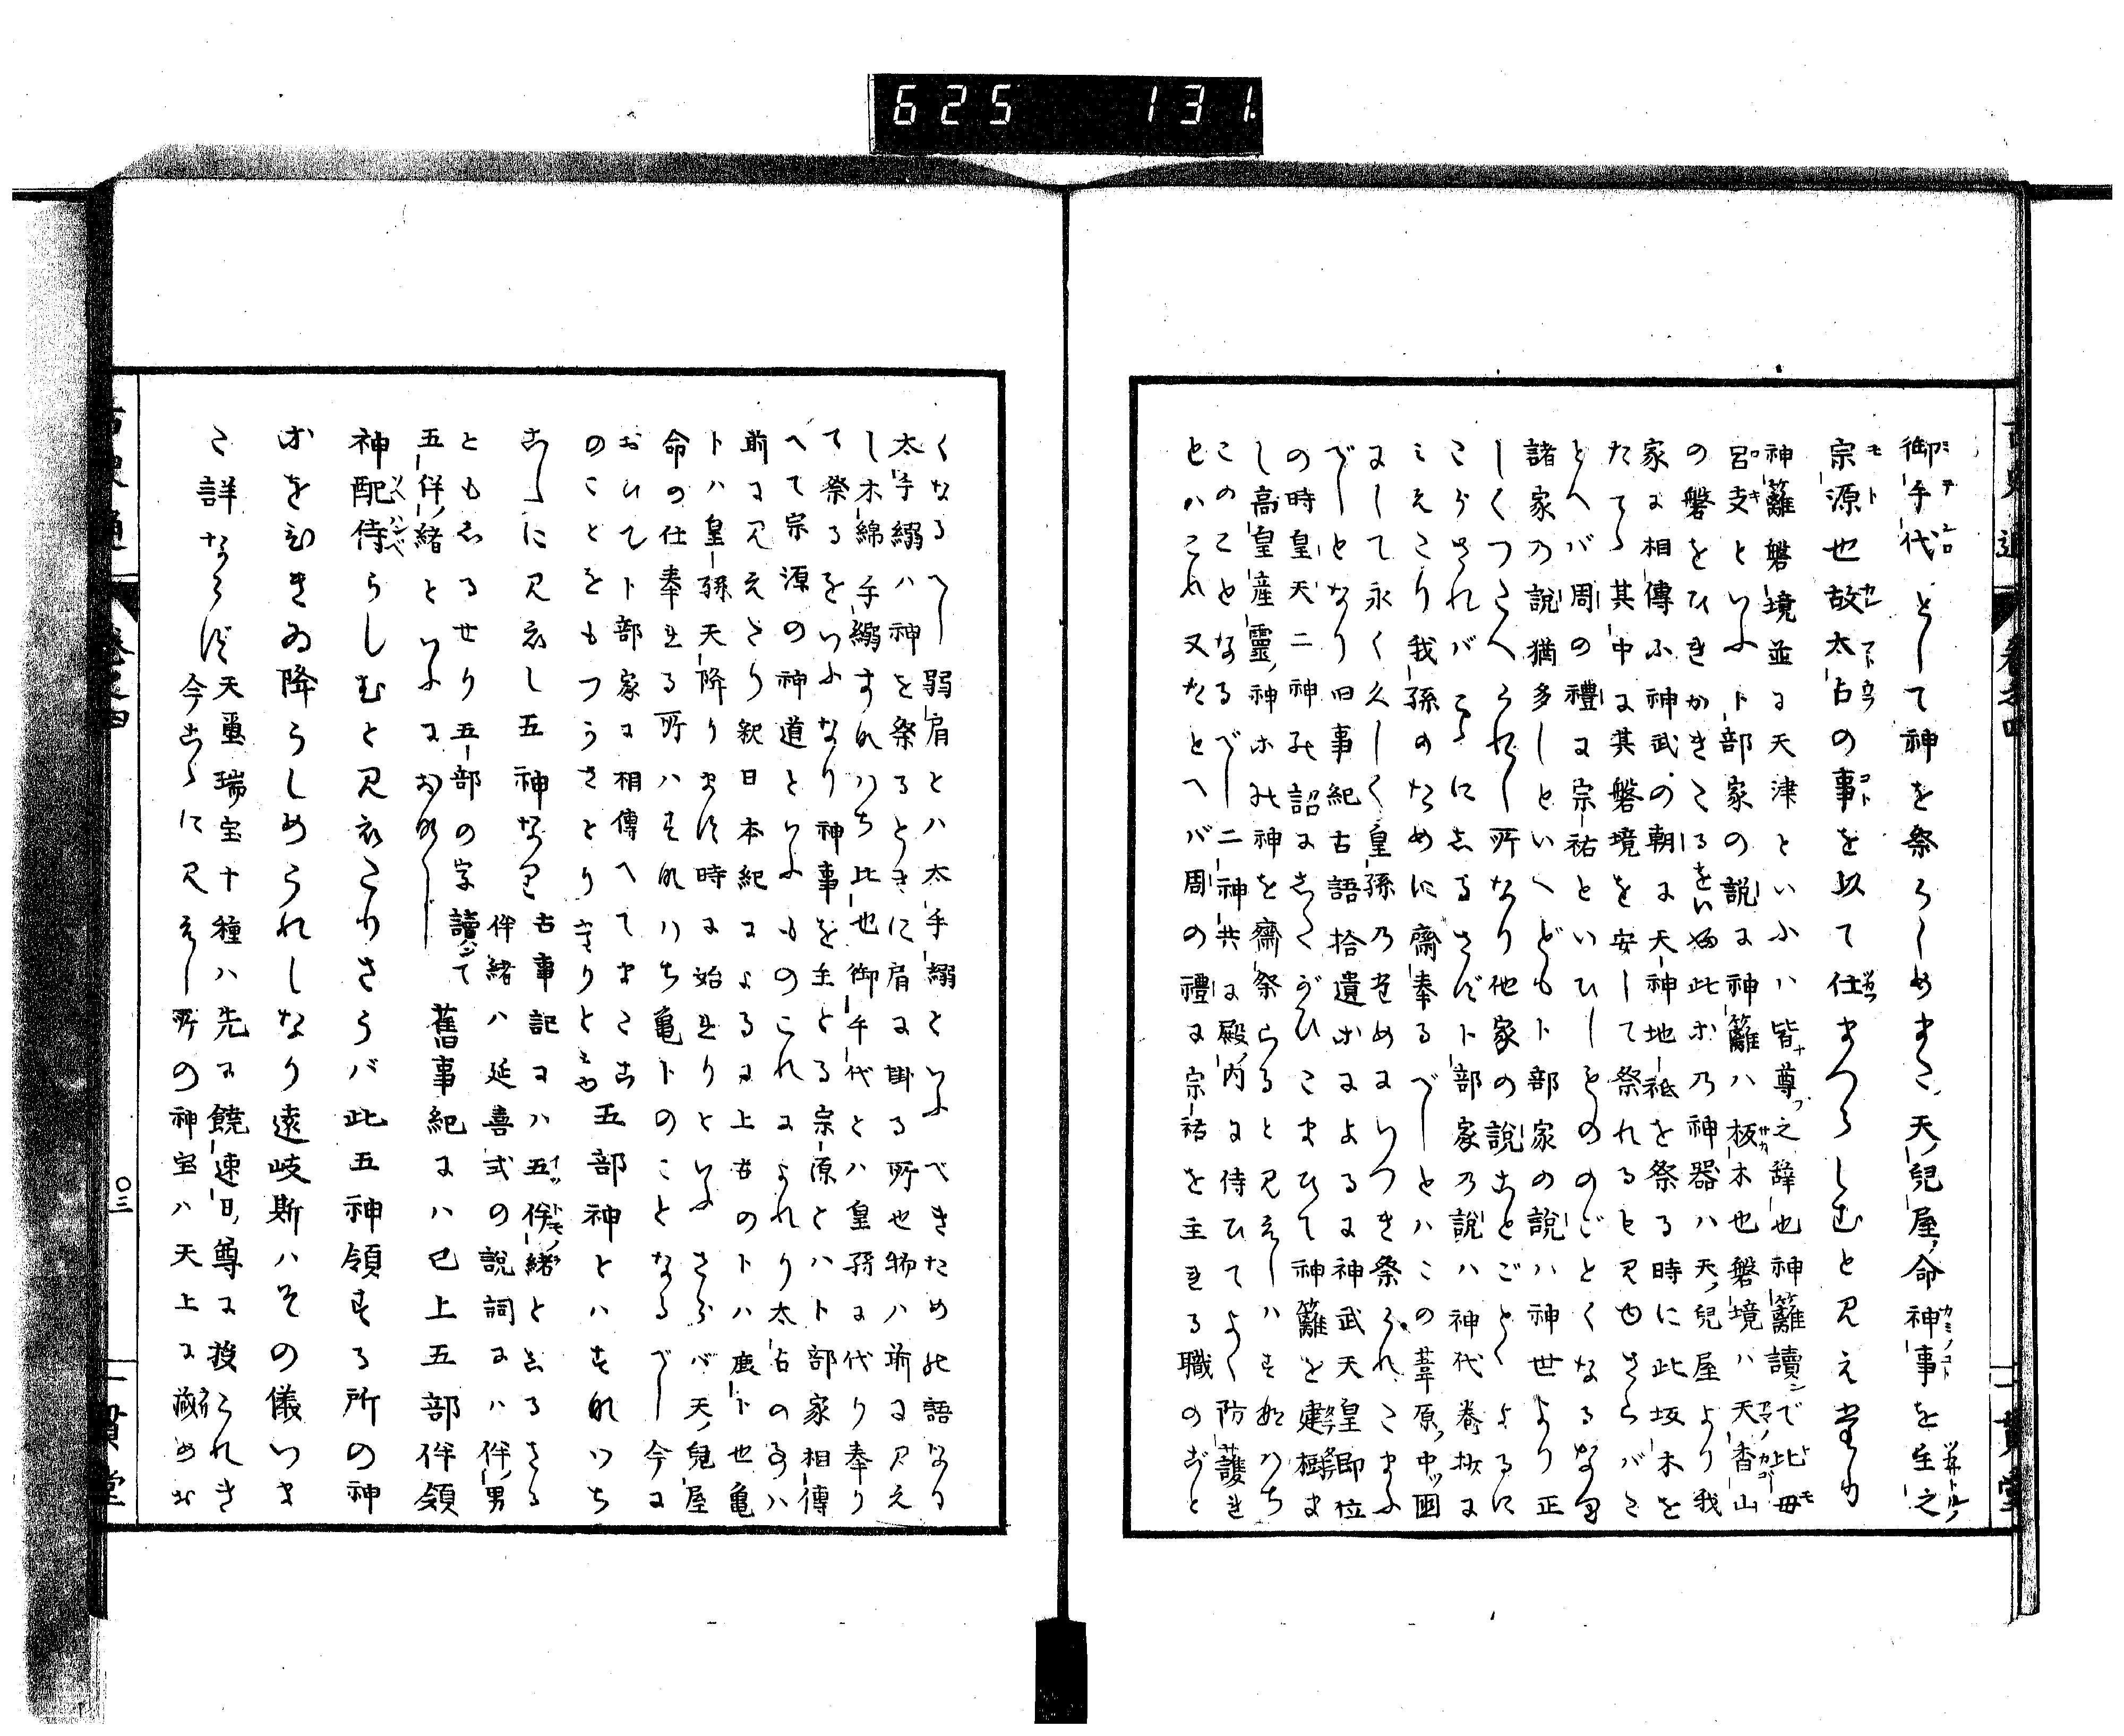 625 131.
御手代として神を祭らしめまた天児屋命神事を主之
宗源也故太占の事を以て仕まつらしむと見えたり
神籬磐境並に天津といふハ皆尊之辞也神籬讀で比母
呂支といふ卜部家の説に神籬ハ板木也磐境ハ天香山
の磐をひきかきたるをいふ此ホ乃神器ハ天児屋より我
家に相傳ふ神武の朝に天神地祗を祭る時に此坂木を
たてゝ其中に其磐境を安して祭れると見ゆさらばた
とへバ周の禮に宗祐といひしものゝごとくなるなり
諸家の説猶多しといへども卜部家の説ハ神世より正
しくつたへられし所なり他家の説ことごとくよるに
たらざればこゝにしるさず卜部家乃説ハ神代巻抄に
みえたり我孫のために齋奉るべしとハこの葦原中國
にして永く久しく皇孫乃ためにいつき祭られたまふ
べしとなり旧事紀古語拾遺ホによるに神武天皇即位
の時皇天二神の詔にしたがひたまひて神籬を建樹ま
し高皇産靈神ホの神を齋祭らると見えしハすなはち
このことなるべし二神共に殿内に侍ひてよく防護き
とハこれ又たとへバ周の禮に宗祐を主れる職のごと
くなるべし弱肩とハ太手繦といふべきための語なり
太手繦ハ神を祭るときに肩に掛る所也物ハ前に見え
し木綿手繦すなはち比也御手代とハ皇孫に代り奉り
て祭るをいふなり神事を主とる宗源とハ卜部家相傳
へて宗源の神道といふものこれによれり太占の事ハ
前に見えたり釈日本紀によるに上古の卜ハ鹿卜也亀
卜ハ皇孫天降ります時に始れりといふさらバ天児屋
命の仕奉れる所ハすなハち亀卜のことなるべし今に
おひて卜部家に相傳へてまたこ
のことをもつかさとり守りとす也 五部神とハすなハち
こゝに見えし五神なり 古事記にハ五伴緒としるさる
伴緒ハ延喜式の説詞にハ伴男
ともしるせり五部の字讀ンて
五伴緒といふにおなし 舊事紀にハ已上五部伴領
神配侍らしむと見えたりさらバ此五神領する所の神
ホをひきゐ降らしめられしなり遠岐斯ハその儀いま
た詳ならず 天璽瑞宝十種ハ先に饒速日尊に授られき
今こゝに見えし所の神宝ハ天上に蔵めお
古史通 巻之四
〇三
一貫堂